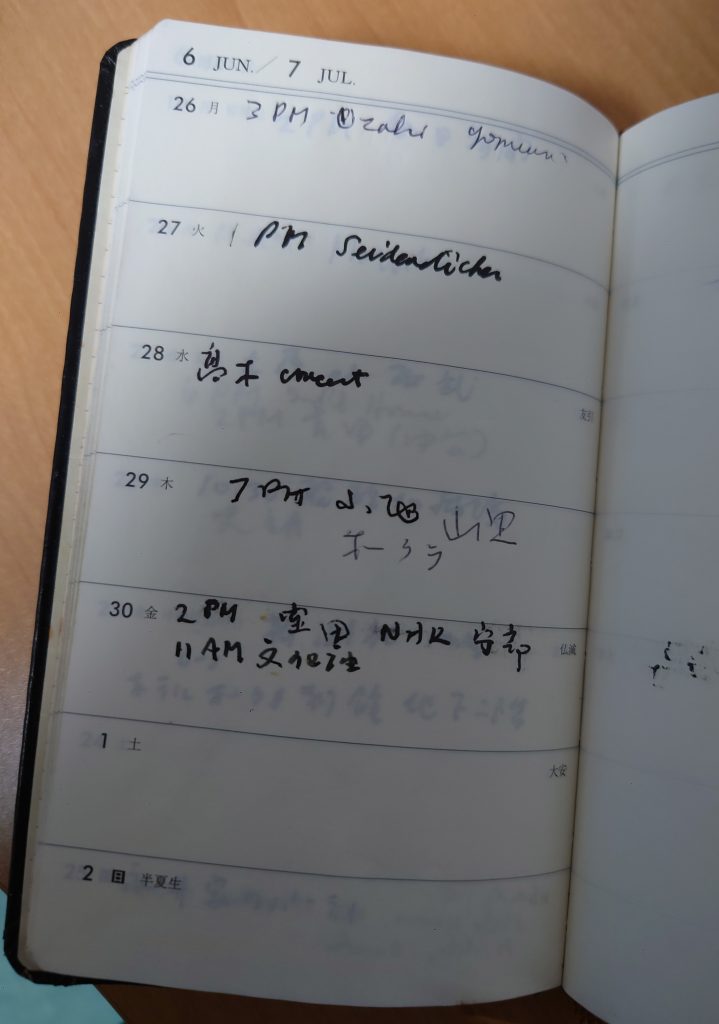 6 JUN. / 7 JUL.
26 月 3 PM Ozaki Yomiuri
27 火 1 PM Seidensticker
28 水 高木 concert
友引
29 木 7 PM 小池
山里
ホークラ
30 金 2 PM 窪田 NHR 守部
仏滅
11 AM 文化
1 土
大安
2 日 半夏生